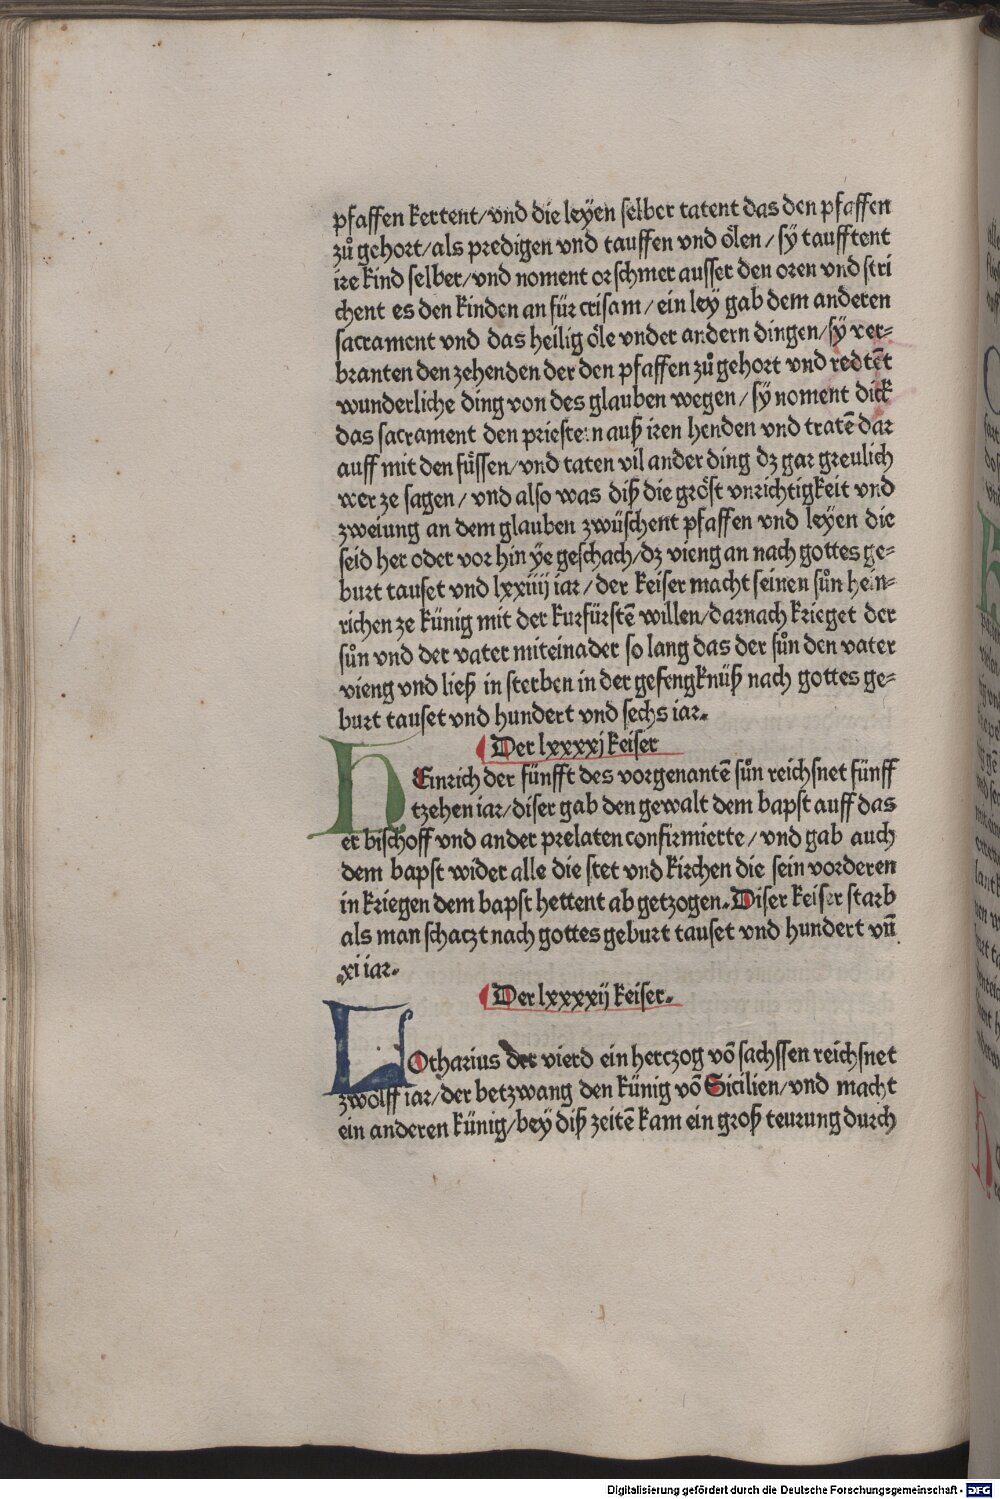 pfaffen kertent/vnd die leyen selber tatent das den pfaffen
zů gehort/als predigen vnd tauffen vnd ölen/sÿ taufftent
ire kind selber/vnd noment orschmer ausser den oren vnd stri
chent es den kinden an für crisam/ein ley gab dem anderen
sacrament vnd das heilig öle vnder andern dingen/sÿ ver-
branten den zehenden der den pfaffen zů gehort vnd redtēt
wunderliche ding von des glauben wegen/sÿ noment dick
das sacrament den priestern auß iren henden vnd tratē dar
auff mit den füssen/vnd taten vil ander ding dz gar greulich
wer ze sagen/vnd also was diß die gröst vnrichtigkeit vnd
zweiung an dem glauben zwüschent pfaffen vnd leyen die
seid her oder vor hin ÿe geschach/dz vieng an nach gottes ge-
burt tauset vnd lxxiiij iar/der keiser macht seinen sůn hein-
richen ze künig mit der kurfürstē willen/darnach krieget der
sůn vnd der vater miteinader so lang das der sůn den vater
vieng vnd ließ in sterben in der gefengknüß nach gottes ge-
burt tauset vnd hundert vnd sechs iar.
Der lxxxxj keiser
HEinrich der fünfft des vorgenantē sůn reichsnet fünff
tzehen iar/diser gab den gewalt dem bapst auff das
er bischoff vnd ander prelaten confirmierte/vnd gab auch
dem bapst wider alle die stet vnd kirchen die sein vorderen
in kriegen dem bapst hettent ab getzogen.Diser keiser starb
als man schaczt nach gottes geburt tauset vnd hundert vñ
xi iar.
Der lxxxxij keiser.
LOtharius der vierd ein herczog vō sachssen reichsnet
zwölff iar/der betzwang den künig vō Sicilien/vnd macht
ein anderen künig/bey diß zeitē kam ein groß teurung durch
Digitalisierung gefördert durch die Deutsche Forschungsgemeinschaft - DFG